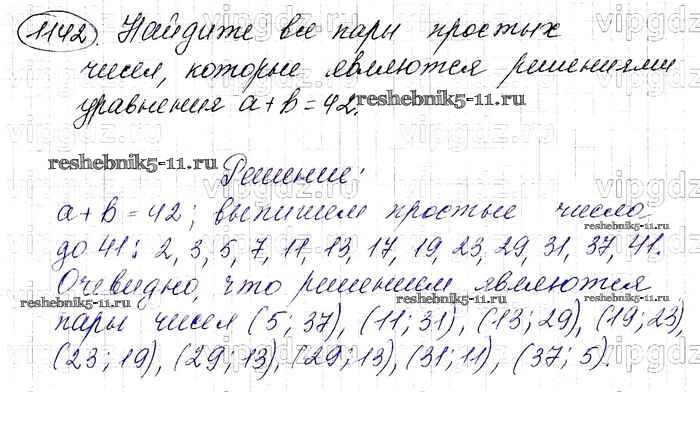 1142. Найдите все пары простых
чисел, которые являются решениями
уравнения a+b=42.
reshebnik5-11.ru
reshebnik5-11.ru
Решение:
a+b=42; выпишем простые числа
reshebnik5-11.ru
до 41: 2, 3, 5, 7, 11, 13, 17, 19, 23, 29, 31, 37, 41.
Очевидно, что решением являются
reshebnik5-11.ru reshebnik5-11.ru reshebnik5-11.ru
пары чисел (5; 37), (11; 31), (13; 29), (19; 23),
(23; 19), (29; 13), (29; 13), (31; 11), (37; 5).
vipgdz.ru
vipgdz.ru
vipgdz.ru
vipgdz.ru